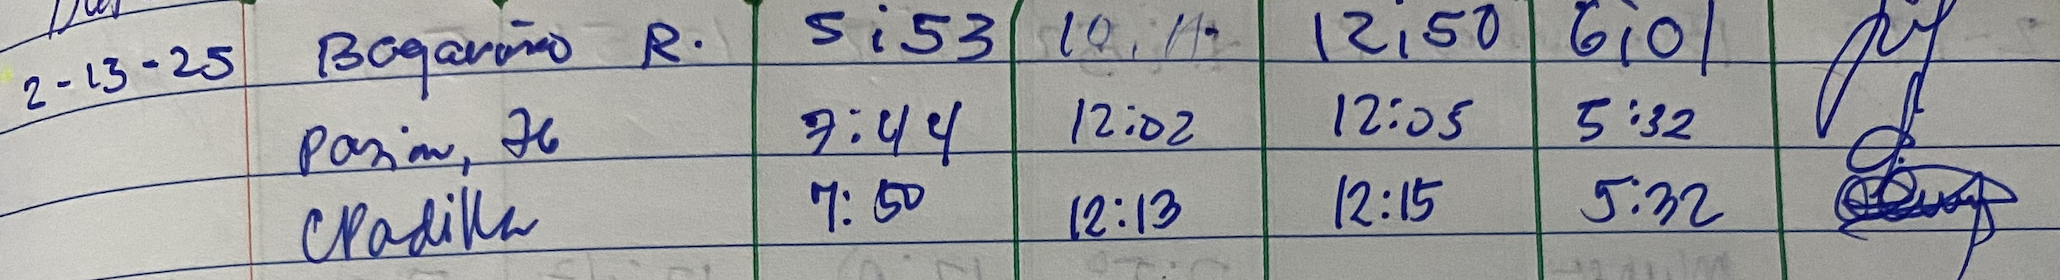 2-13-25 Bogariño R. 5:53 12:50 6:01
Pazim, 7:44 12:02 12:05 5:32
CPadilla 7:50 12:13 12:15 5:32